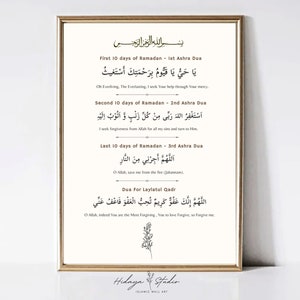 بسم الله الرحمن الرحيم
First 10 days of Ramadan - 1st Ashra Dua
يَا حَيُّ يَا قَيُّومُ بِرَحْمَتِكَ أَسْتَغِيثُ
Oh Everliving, The Everlasting, I seek Your help through Your mercy.
Second 10 days of Ramadan - 2nd Ashra Dua
اَسْتَغْفِرُ اللهَ رَبِّي مِنْ كُلِّ ذَنْبٍ وَّ اَتُوْبُ اِلَيْهِ
I seek forgiveness from Allah for all my sins and turn to Him.
Last 10 days of Ramadan - 3rd Ashra Dua
اَللَّهُمَّ أَجِرْنِي مِنَ النَّارِ
O Allah, save me from the fire (jahannam).
Dua For Laylatul Qadr
اَللَّهُمَّ إِنَّكَ عَفُوٌّ كَرِيمٌ تُحِبُّ الْعَفْوَ فَاعْفُ عَنِّي
O Allah, indeed You are the Most Forgiving, You to love Forgive, so Forgive me.
Hidaya Studio
ISLAMIC WALL ART